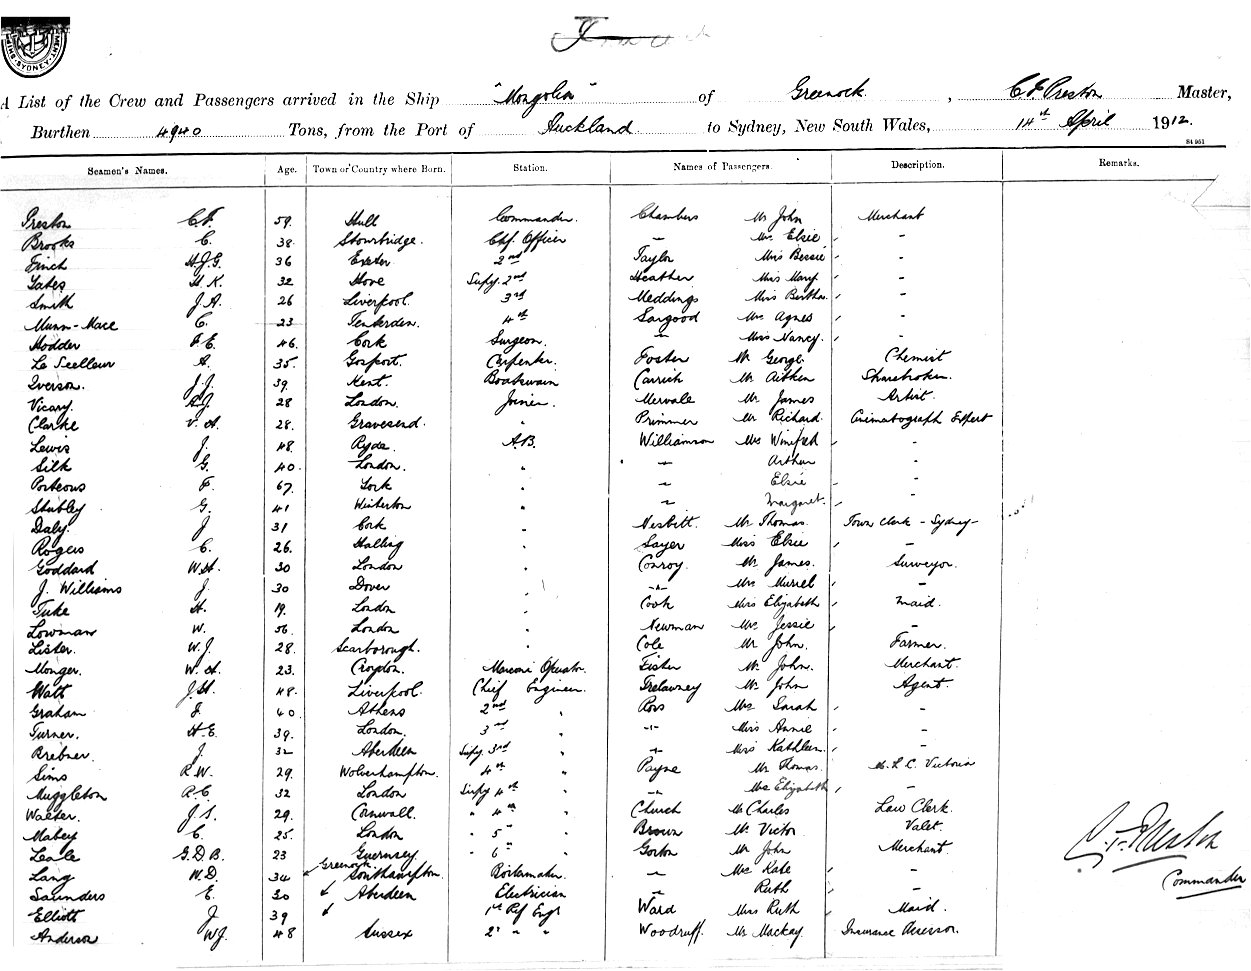 SHIP
SYDNEY
MENT
A List of the Crew and Passengers arrived in the Ship "Mongolia" of Greenock, C F Preston Master,
Burthen 4940 Tons, from the Port of Auckland to Sydney, New South Wales, 14th April 1912.
St 951
Seamen's Names. Age. Town or Country where Born. Station. Names of Passengers. Description. Remarks.
Preston C.F. 59. Hull Commander. Chambers Mr John Merchant
Brooks C. 38. Stourbridge. Chf. Officer " Mrs Elsie -
Finch H.J.G. 36 Exeter 2nd Taylor Miss Bessie -
Yates H.K. 32 Hove Supy. 2nd Heather Miss Mary -
Smith J.A. 26 Liverpool. 3rd Meddings Miss Bertha -
Munn-Mace C. 23 Tenterden. 4th Sargood Mrs Agnes -
Hodder F.E. 46. Cork Surgeon. " Miss Nancy. -
Le Scelleur A. 35. Gosport. Carpenter. Foster Mr George Chemist
Iverson. J.J. 39. Kent. Boatswain Carrick Mr Aitken Sharebroker.
Vicary. A.J. 28 London. Joiner. Mervale Mr James Artist.
Clarke V.A. 28. Gravesend. " Primmer Mr Richard. Cinematograph Expert
Lewis J. 48. Ryde. A.B. Williamson Mrs Winifred -
Silk G. 40. London. " " Arthur -
Porteous F. 67. York " " Elsie -
Stubley G. 41 Winterton " " Margaret. -
Daly. J 31 Cork " Nesbitt. Mr Thomas. Town Clerk - Sydney -
Rogers C. 26. Halling " Sayer Miss Elsie -
Goddard W.H. 30 London " Conroy. Mr James. Surveyor.
J. Williams J. 30 Dover " " Mrs Muriel -
Tuke H. 19. London " Cook Miss Elizabeth Maid.
Lowman W. 56. London " Newman Mrs Jessie -
Lister. W.J. 28. Scarborough. " Cole Mr John. Farmer.
Monger. W.A. 23. Croydon. Marconi Operator. Fisher Mr John. Merchant.
Watt J.H. 48. Liverpool. Chief Engineer. Trelawney Mr John Agent.
Graham J. 40. Athens 2nd " Ross Mrs Sarah -
Turner. H.E. 39. London. 3rd " " Miss Annie -
Brebner. J. 32 Aberdeen Supy. 3rd " " Miss Kathleen. -
Sims R.W. 29. Wolverhampton. 4th " Payne Mr Thomas. M.L.C. Victoria
Muggleton R.C. 32 London Supy 4th " " Mrs Elizabeth -
Walter. J.S. 29. Cornwall. " 4th " Church Mr Charles Law Clerk.
Mabey C. 25. London " 5th " Brown Mr Victor Valet.
Leale G.D.B. 23 Guernsey. " 6th " Gorton Mr John Merchant.
Lang W.D. 34 Greenock Southampton. Boilermaker. " Mrs Kate -
Saunders E. 30 Aberdeen Electrician " Ruth -
Elliott J. 39 1st Ref Engr Ward Miss Ruth Maid.
Anderson W.J. 48 Sussex 2nd " " Woodruff. Mr Mackay. Insurance Assessor.
C F Preston
Commander